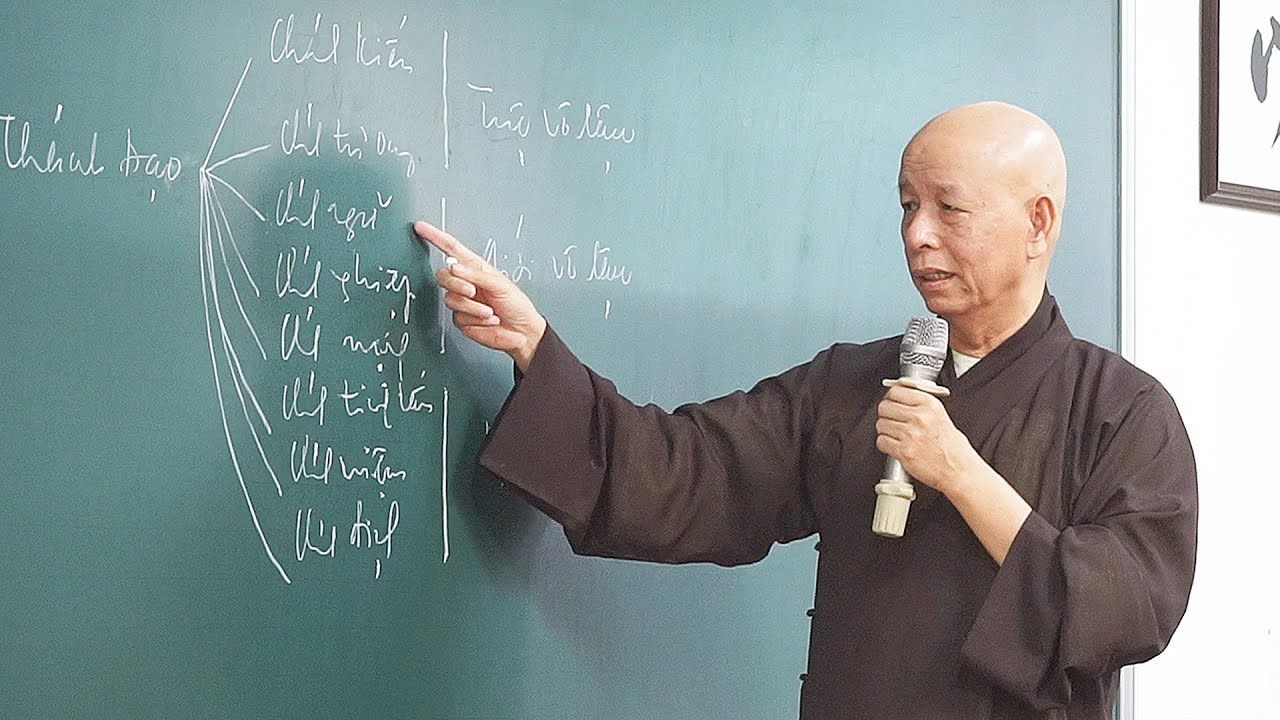 Thánh đạo
Chánh kiến
Chánh tư duy
Chánh ngữ
Chánh nghiệp
Chánh mạng
Chánh tinh tấn
Chánh niệm
Chánh định
Tuệ vô lậu
Giới vô lậu